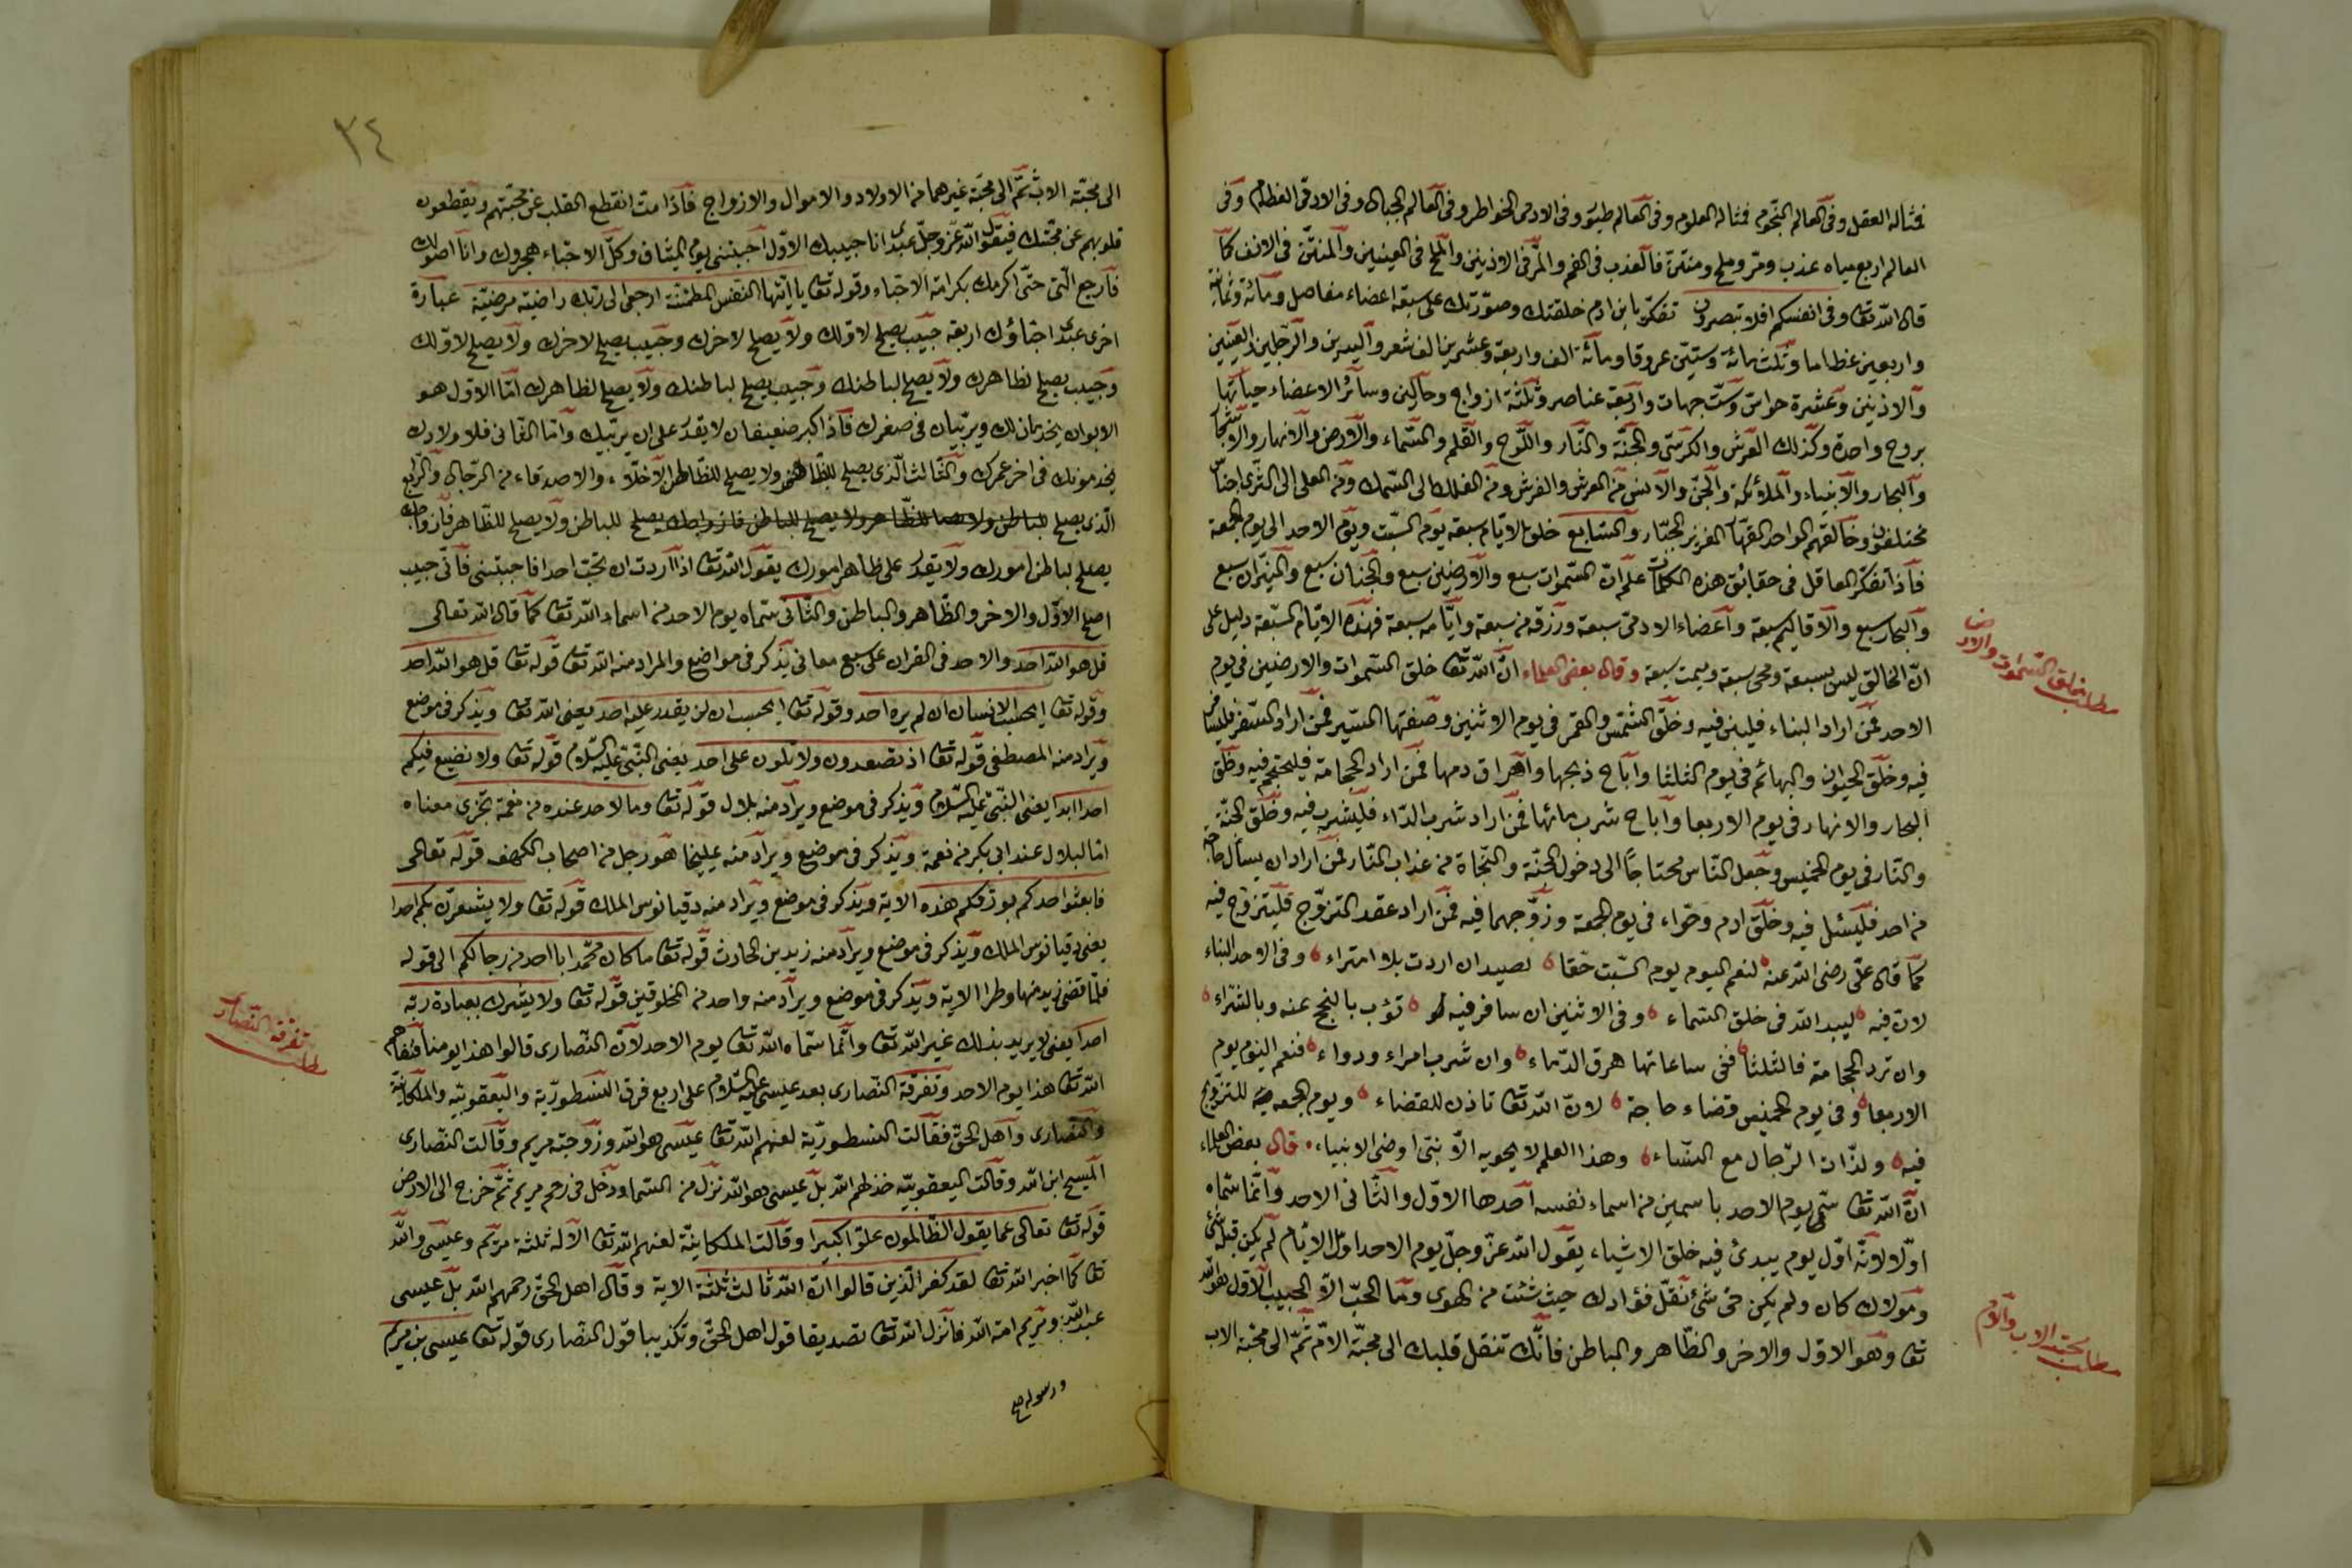 فمثاله العقل وفى العالم النجوم فمثاله العلوم وفى العالم طيور وفى الادمى الخواطر وفى العالم الجبال وفى الادمى العظام وفى
العالم اربع مياه عذب ومر وملح ومنتن فالعذب فى الفم والمر فى الاذنين والملح فى العينين والمنتن فى الانف كما
قال الله تعا وفى انفسكم افلا تبصرون تفكر يا ابن ادم خلقتك وصورتك على سبعة اعضاء مفاصل ومائة وثمانية
واربعين عظاما وثلث مائة وستين عروقا ومائة الف واربعة وعشرين الف شعر واليدين والرجلين والعينين
والاذنين وعشرة حواس وست جهات واربعة عناصر وثلثة ازواج وسائر الاعضاء حياتها
بروح واحدة وكذلك العرش والكرسى والجنة والنار واللوح والقلم والسماء والارض والانهار والاشجار
والبحار والانبياء والملائكة والجن والانس من العرش والفرش ومن الفلك الى السمك ومن العلى الى الثرى اجناس
مختلفون وخالقهم الواحد القهار العزيز الجبار والسابع خلق الايام سبعة يوم السبت ويوم الاحد الى يوم الجمعة
فاذا تفكر العاقل فى حقائق هذه الكلمات علم ان السموات سبع والارضين سبع والجنان سبع والنيران سبع
والبحار سبع والاقاليم سبعة واعضاء الادمى سبعة ورزقه من سبعة وايامه سبعة فهذه الايام السبعة دليل على
ان الخالق ليس بسبعة ومحى سبعة ومميت سبعة وقال بعض العلماء ان الله تعا خلق السموات والارضين فى يوم
الاحد فمن اراد البناء فليبن فيه وخلق الشمس والقمر فى يوم الاثنين وصفتها السير فمن اراد السفر فليسافر
فيه وخلق الحيوان والبهائم فى يوم الثلثا واباح ذبحها واهراق دمها فمن اراد الحجامة فليحتجم فيه وخلق
البحار والانهار فى يوم الاربعا واباح شرب مائها فمن اراد شرب الداء فليشرب فيه وخلق الجنة
والنار فى يوم الخميس وجعل الناس محتاجا الى دخول الجنة والنجاة من عذاب النار فمن اراد ان يسأل حاجة
من احد فليسئل فيه وخلق ادم وحواء فى يوم الجمعة وزوجهما فيه فمن اراد عقد التزوج فليتزوج فيه
كما قال على رضى الله عنه لنعم اليوم يوم السبت حقا لصيد ان اردت بلا امتراء وفى الاحد البناء
لان فيه ليبد الله فى خلق السماء وفى الاثنين ان سافر فيه تؤب بالنجح عنه وبالثراء
وان ترد الحجامة فالثلثا ففى ساعاتها هرق الدماء وان شرب امراء ودواء فنعم اليوم يوم
الاربعا وفى يوم الخميس قضاء حاجة لان الله تعا تاذن للقضاء ويوم الجمعة للتزويج
فيه ولذات الرجال مع النساء وهذا العلم لا يحويه الا نبى او وصى الانبياء قال بعض العلماء
ان الله تعا سمى يوم الاحد باسمين من اسماء نفسه احدها الاول والثانى الاحد وانما سماه
اولا لانه اول يوم يبدئ فيه خلق الاشياء يقول الله عز وجل يوم الاحد اول الايام لم يكن قبله شئ
ومولاك كان ولم يكن حى شئ نقل فؤادك حيث شئت من الهوى وما الحب الا للحبيب الاول هو الله
تعا وهو الاول والاخر والظاهر والباطن فانك تنقل قلبك الى محبة الام ثم الى محبة الاب
مطلب خلق السموات والارض
مطلب محبة الاب والام
٣٤
الى محبة الاب ثم الى محبة غيرهما من الاولاد والاموال والازواج فاذا مت انقطع القلب عن محبتهم ويقطعون
قلوبهم عن محبتك فيقول الله عز وجل عبدى انا حبيبك الاول احببتنى يوم الميثاق وكل الاحباء هجروك وانا اصونك
فارجع الى حتى اكرمك بكرامة الاحباء وقوله تعا يا ايتها النفس المطمئنة ارجعى الى ربك راضية مرضية عبارة
اخرى عبدى احباؤك اربعة حبيب يصلح لاولك ولا يصلح لاخرك وحبيب يصلح لاخرك ولا يصلح لاولك
وحبيب يصلح لظاهرك ولا يصلح لباطنك وحبيب يصلح لباطنك ولا يصلح لظاهرك اما الاول هو
الابوان يخدمان لك ويربيان فى صغرك فاذا كبر ضعيفان لا يقدر على ان يربيك واما الثانى فلاولادك
يخدمونك فى اخر عمرك والثالث الذى يصلح للظاهر ولا يصلح للباطن الاخلاء والاصدقاء من الرجال والرابع
الذى يصلح للباطن ولا يصلح للظاهر فازواجك
يصلح لباطن امورك ولا يقدر على ظاهر امورك يقول الله تعا اذا اردت ان تحب احدا فاحببنى فانى حبيب
اصلح الاول والاخر والظاهر والباطن والثانى سماه يوم الاحد من اسماء الله تعا كما قال الله تعالى
قل هو الله احد والاحد فى القران على سبع معانى يذكر فى مواضع والمراد منه الله تعا قوله تعا قل هو الله احد
وقوله تعا ايحسب الانسان ان لم يره احد وقوله تعا ايحسب ان لن يقدر عليه احد يعنى الله تعا ويذكر فى موضع
ويراد منه المصطفى قوله تعا اذ تصعدون ولا تلون على احد يعنى النبى عليه السلام قوله تعا ولا نضيع فيكم
احدا ابدا يعنى النبى عليه السلام ويذكر فى موضع ويراد منه بلال قوله تعا وما لاحد عنده من نعمة تجزى معناه
اما لبلال عند ابى بكر من نعمة ويذكر فى موضع ويراد منه يمليخا هو رجل من اصحاب الكهف قوله تعالى
فابعثوا احدكم بورقكم هذه الاية ويذكر فى موضع ويراد منه دقيانوس الملك قوله تعا ولا يشعرن بكم احدا
يعنى دقيانوس الملك ويذكر فى موضع ويراد منه زيد بن الحارث قوله تعا ما كان محمد ابا احد من رجالكم الى قوله
فلما قضى زيد منها وطرا الاية ويذكر فى موضع ويراد منه واحد من المخلوقين قوله تعا ولا يشرك بعبادة ربه
احدا يعنى لا يريد بذلك غير الله تعا وانما سماه الله تعا يوم الاحد لان النصارى قالوا هذا يومنا
الله تعا هذا يوم الاحد وتفرقة النصارى بعد عيسى عليه السلام على اربع فرق النسطورية واليعقوبية والملكانية
والنصارى واهل الحق فقالت النسطورية لعنهم الله تعا عيسى هو الله وزوجته مريم وقالت النصارى
المسيح ابن الله وقالت اليعقوبية خذلهم الله بل عيسى هو الله نزل من السما ودخل فى رحم مريم ثم خرج الى الارض
قوله تعا تعالى عما يقول الظالمون علوا كبيرا وقالت الملكانية لعنهم الله تعا الاله ثلثة مريم وعيسى والله
تعا كما اخبر الله تعا لقد كفر الذين قالوا ان الله ثالث ثلثة الاية وقال اهل الحق رحمهم الله بل عيسى
عبد الله ومريم امة الله فانزل الله تعا تصديقا قول اهل الحق وتكذيبا قول النصارى قوله تعا عيسى بن مريم
ورسوله
مطلب تفرقة النصارى